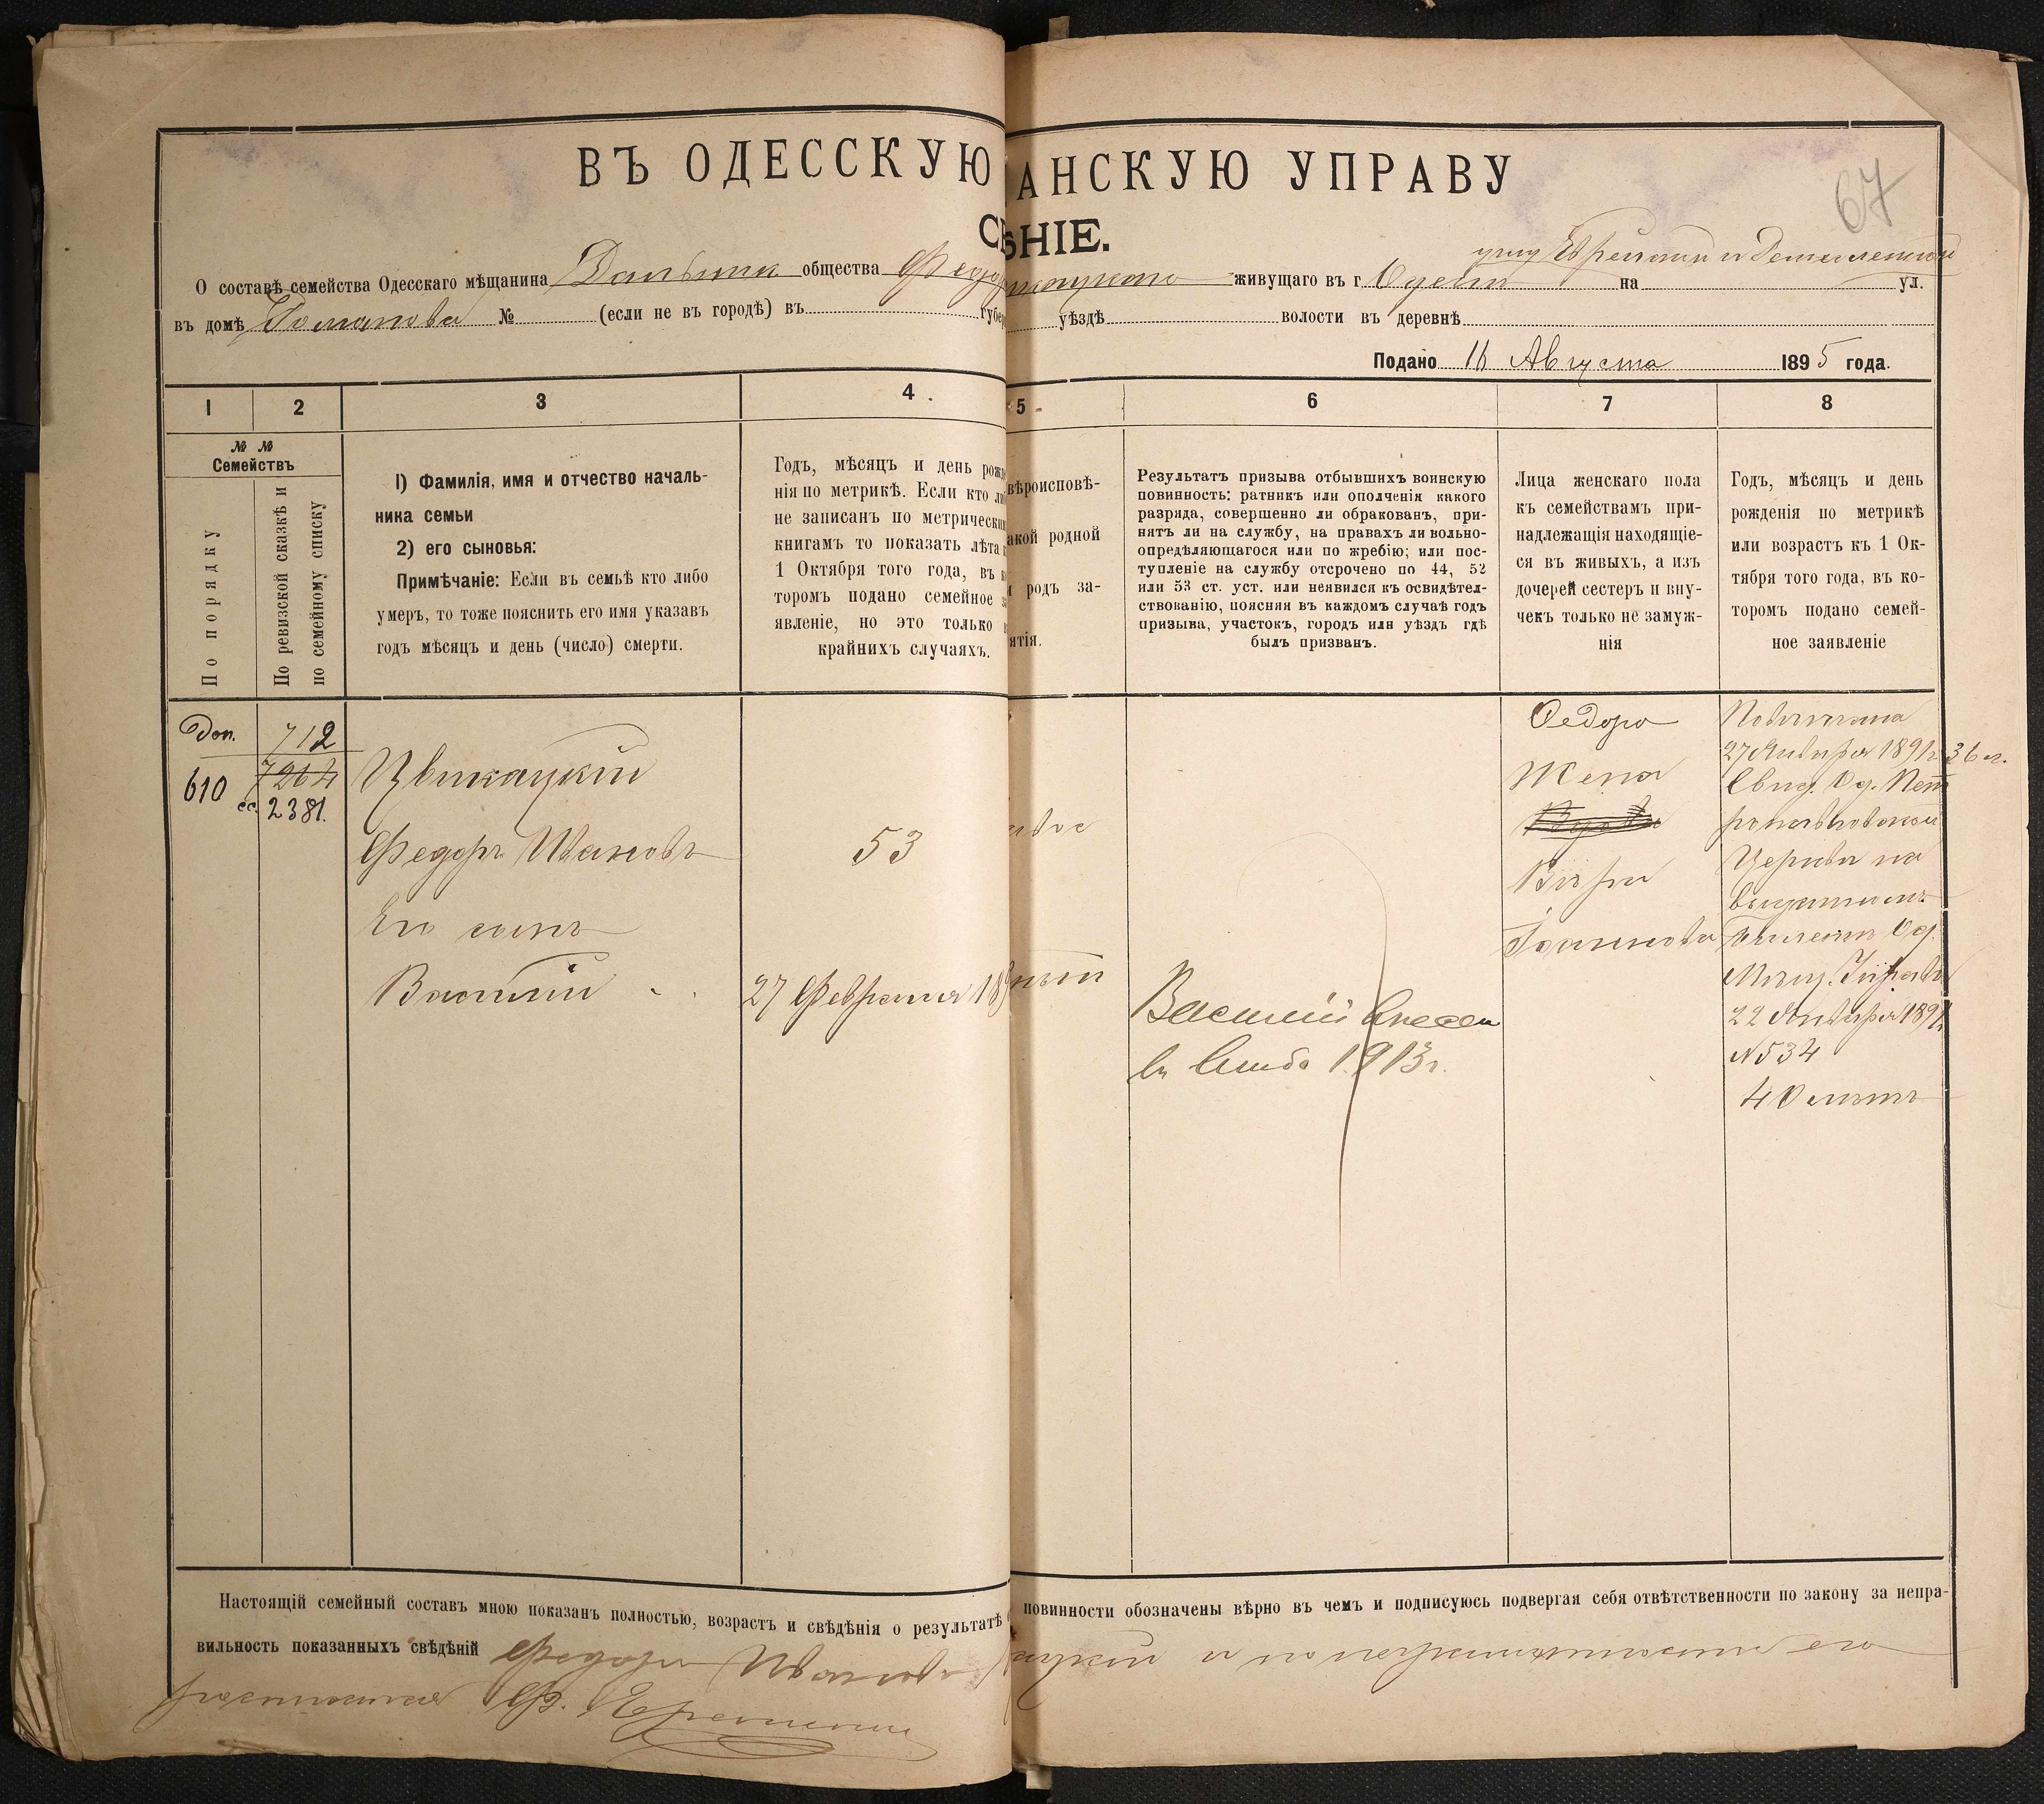 67
ВЪ ОДЕССКУЮ АНСКУЮ УПРАВУ
ѢНІЕ.
О составѣ семейства Одесскаго мѣщанина Дальник общества живущаго въ г. Одессѣ на ул.
въ домѣ № (если не въ городѣ) въ уѣздѣ волости въ деревнѣ
Подано 16 Августа 1895 года.
1 2 3 4 5 6 7 8
№ №
Семействъ
По порядку
По ревизской сказкѣ и
по семейному списку
1) Фамилія, имя и отчество началь-
ника семьи
2) его сыновья:
Примѣчаніе: Если въ семьѣ кто либо
умеръ, то тоже пояснить его имя указавъ
годъ мѣсяцъ и день (число) смерти.
Годъ, мѣсяцъ и день рожд
нія по метрикѣ. Если кто ли
не записанъ по метрическим
книгамъ то показать лѣта к
1 Октября того года, въ к
торомъ подано семейное за
явленіе, но это только в
крайнихъ случаяхъ.
вѣроисповѣ-
акой родной
и родъ за-
ятія.
Результатъ призыва отбывшихъ воинскую
повинность: ратникъ или ополченія какого
разряда, совершенно ли обракованъ, при-
нятъ ли на службу, на правахъ ли вольно-
опредѣляющагося или по жребію; или пос-
тупленіе на службу отсрочено по 44, 52
или 53 ст. уст. или неявился къ освидѣтел-
ствованію, поясняя въ каждомъ случаѣ годъ
призыва, участокъ, городъ или уѣздъ гдѣ
былъ призванъ.
Лица женскаго пола
къ семействамъ при-
надлежащія находящіе-
ся въ живыхъ, а изъ
дочерей сестеръ и вну-
чекъ только не замуж-
нія
Годъ, мѣсяцъ и день
рожденія по метрикѣ
или возрастъ къ 1 Ок-
тября того года, въ ко-
торомъ подано семей-
ное заявленіе
Доп. 712
610 7264
сс. 2381.
Цвикацкій
Федоръ Ивановъ 53
Его сынъ
Василій 27 Февраля 18
Василій внесен
въ 1913 г.
Федора
Жена
Вѣра
Іоаннова
Повѣнчана
27 Января 1891 г. 36 л.
Свид. Од. Пет
ропавловской
Церкви на
Од.
Мѣщ. Управы
22 Января 1891
№ 534
40 лѣтъ
Настоящій семейный составъ мною показанъ полностью, возрастъ и свѣдѣнія о результатѣ повинности обозначены вѣрно въ чемъ и подписуюсь подвергая себя отвѣтственности по закону за непра-
вильность показанныхъ свѣдѣній Федоръ Ивановъ ацкій а по неграмотности его
росписался Ф.